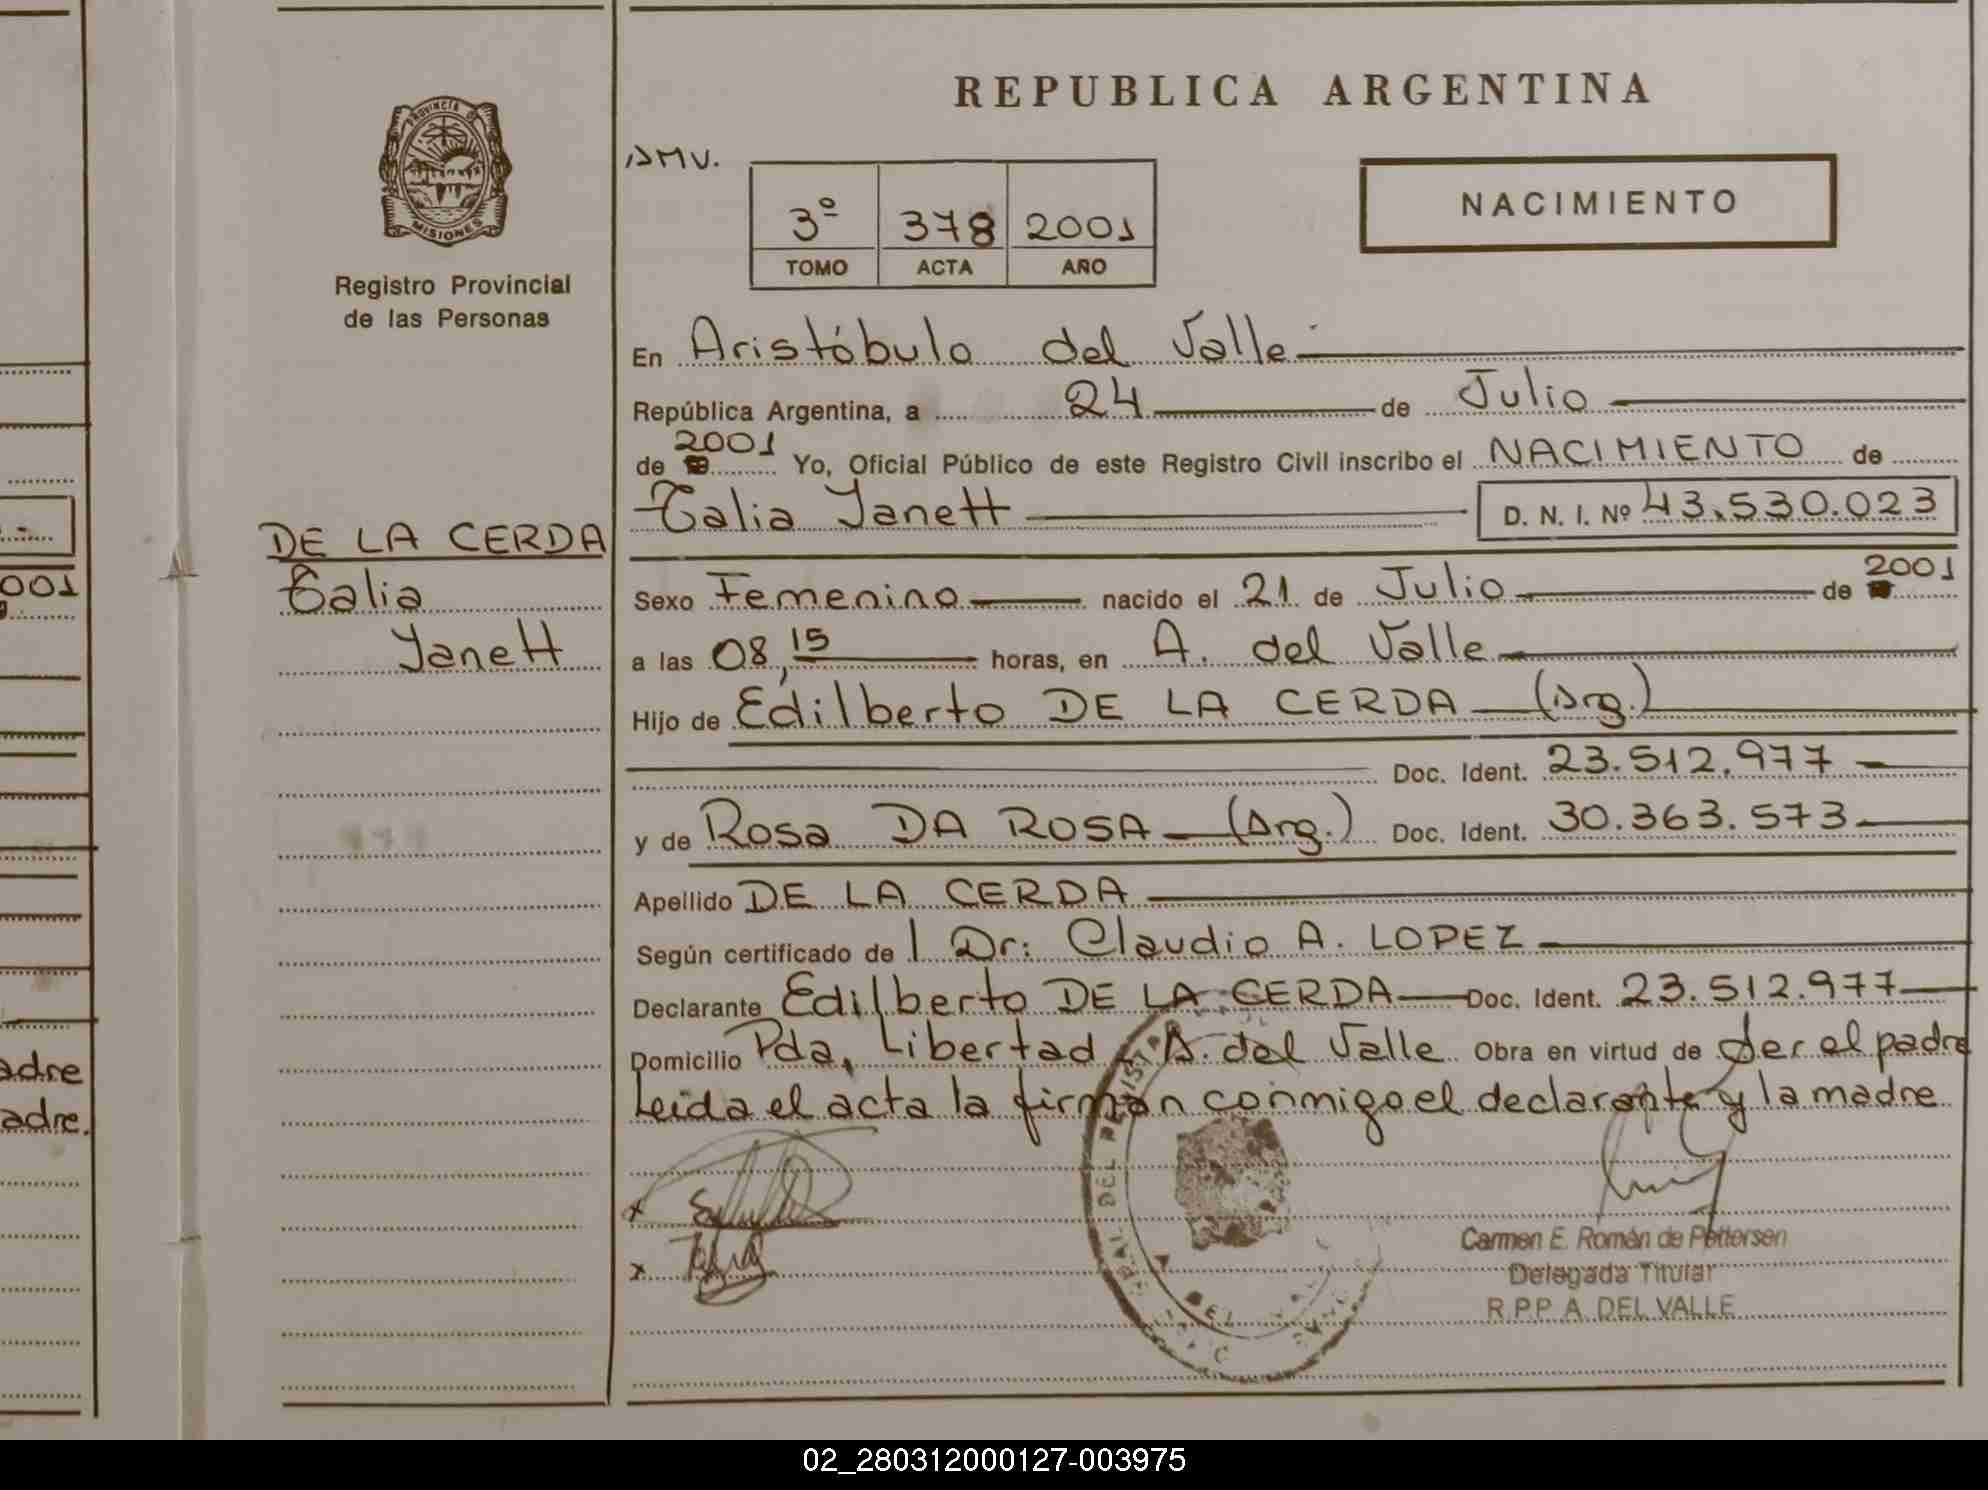 REPUBLICA ARGENTINA
PROVINCIA DE
MISIONES
Registro Provincial
de las Personas
AMV.
3º 378 2001
TOMO ACTA AÑO
NACIMIENTO
En Aristóbulo del Valle
República Argentina, a 24 de Julio
de 2001 Yo, Oficial Público de este Registro Civil inscribo el NACIMIENTO de
Talia Yanett D. N. I. Nº 43.530.023
DE LA CERDA
Talia
Yanett
Sexo Femenino nacido el 21 de Julio de 2001
a las 08,15 horas, en A. del Valle
Hijo de Edilberto DE LA CERDA (Arg.)
Doc. Ident. 23.512.977
y de Rosa DA ROSA (Arg.) Doc. Ident. 30.363.573
Apellido DE LA CERDA
Según certificado de l Dr: Claudio A. LOPEZ
Declarante Edilberto DE LA CERDA Doc. Ident. 23.512.977
Domicilio Pda. Libertad - A. del Valle Obra en virtud de ser el padre
Leída el acta la firman conmigo el declarante y la madre
x
x
Carmen E. Román de Pettersen
Delegada Titular
R.P.P. A. DEL VALLE
001
adre
adre.
02_280312000127-003975